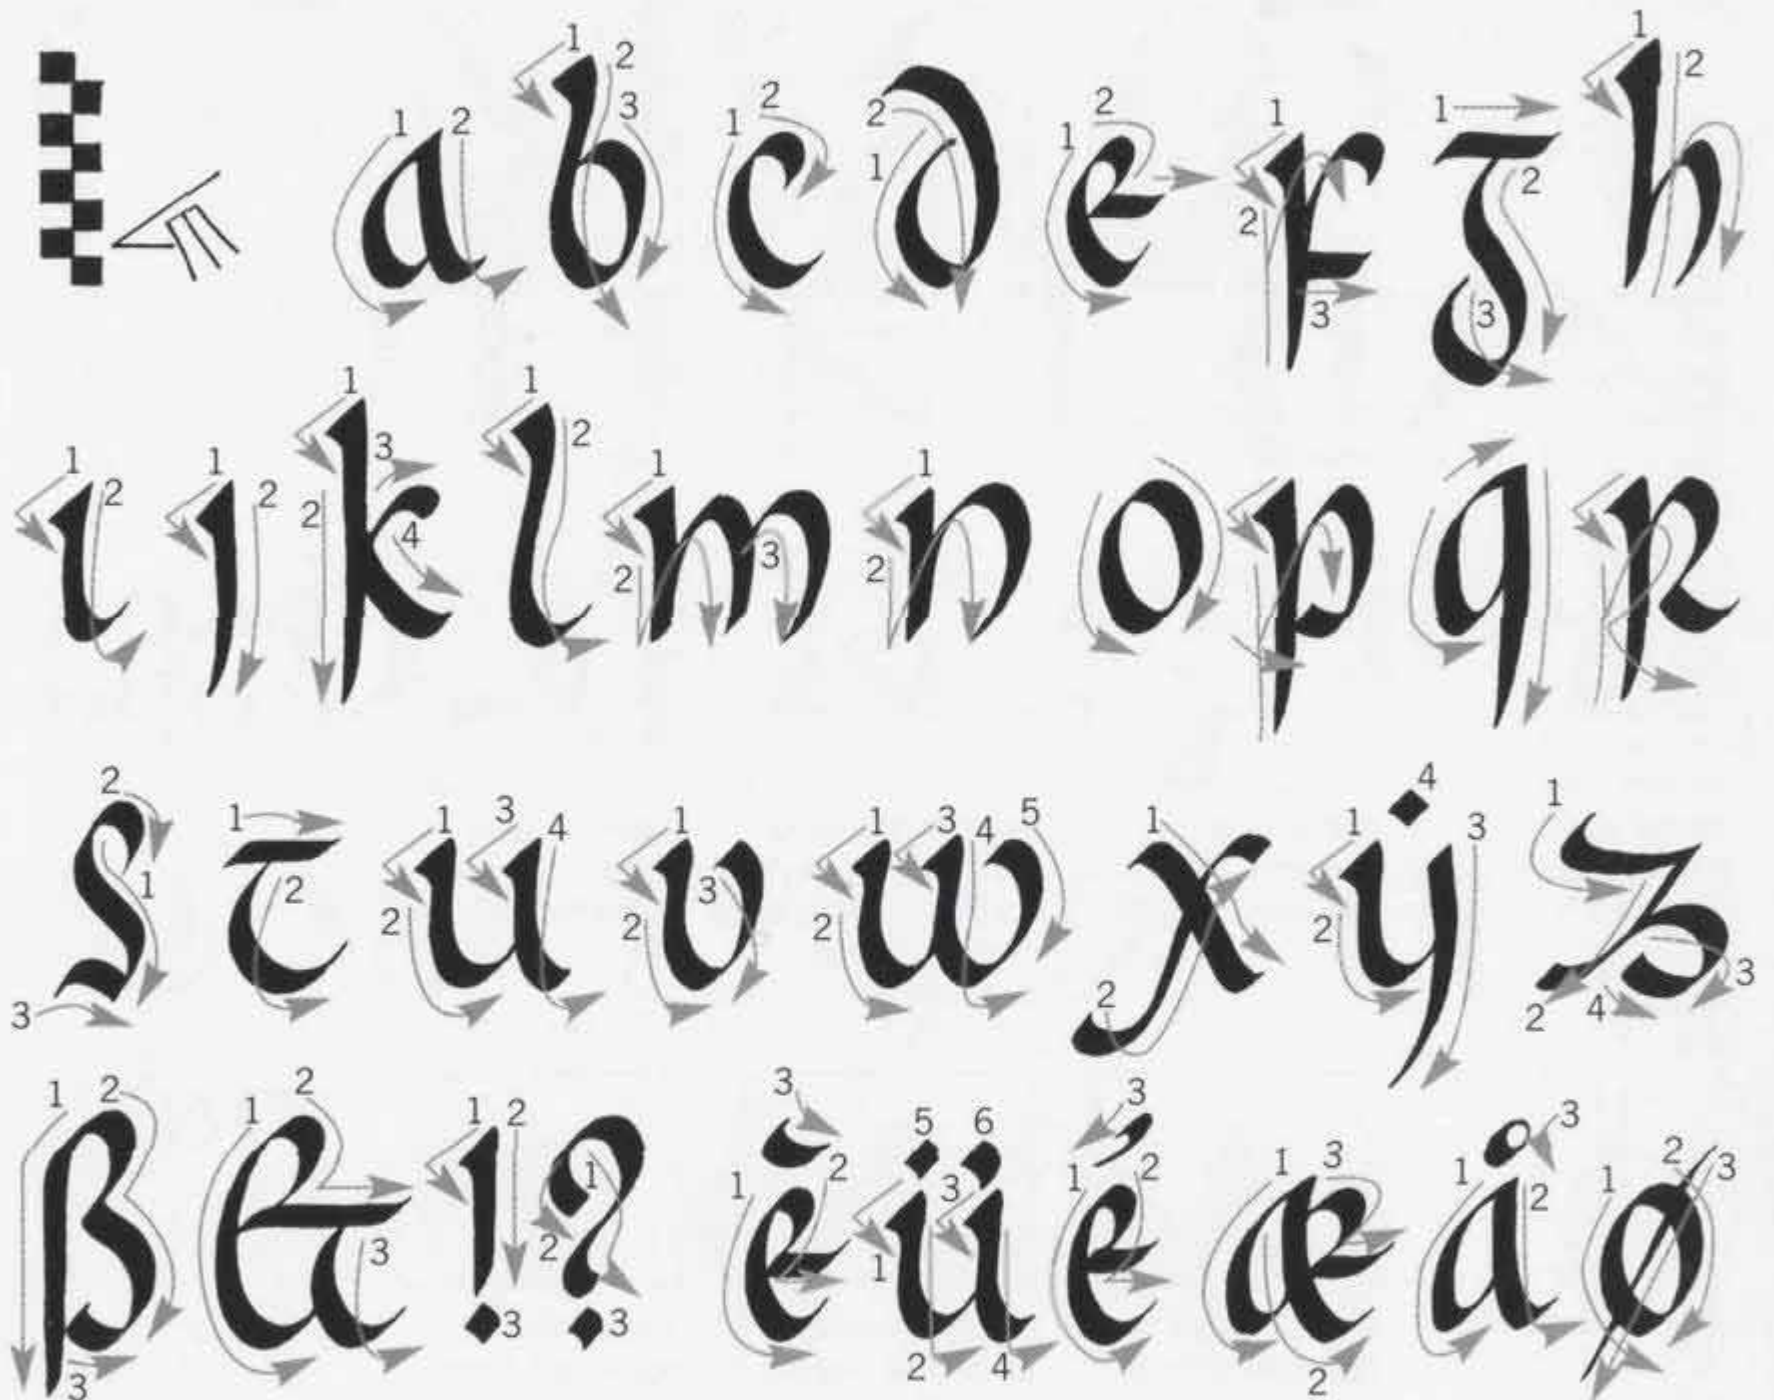 a b c d e f g h
ı ȷ k l m n o p q r
s t u v w x ẏ z
ß & ! ? ĕ ü é æ å ø